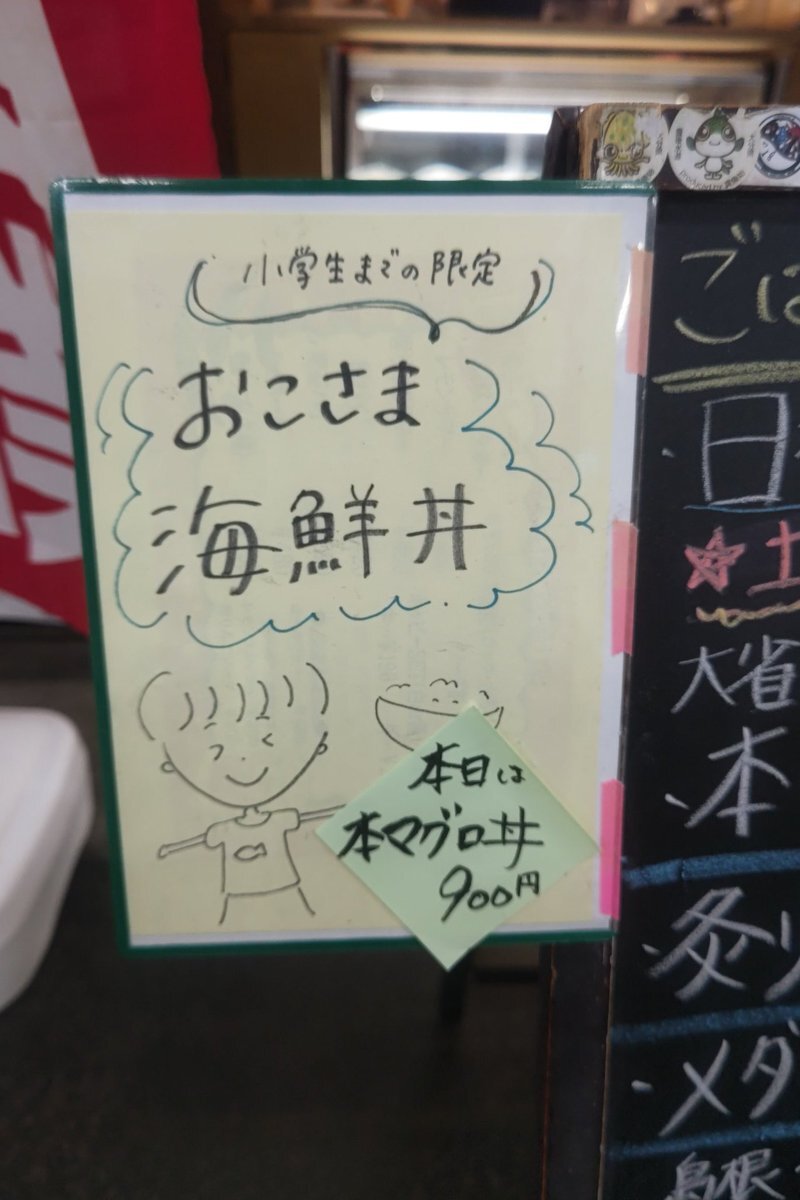 小学生までの限定
おこさま
海鮮丼
本日は
本マグロ丼
900円
ごは
日
★土
大省
本
炙り
・メダ
島根